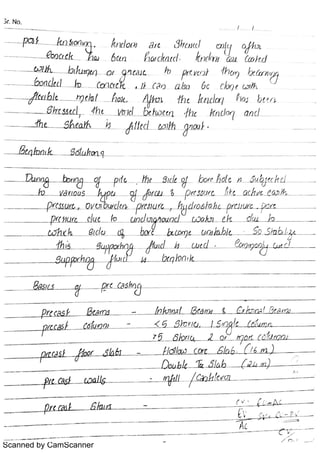 Sr. No.
post tensioning, tendons are stressed only after
concrete has been hardened. tendons are coated
with bitumen or grease to prevent them bearing
bonded to concrete. it can also be done with
flexible metal hose. After the tendon has been
stressed, the void between the tendon and
the sheath is filled with grout.
Bentonite Solution
During boring of pile, the side of bore hole is subjected
to various types of forces & pressure like active earth
pressure, overburden pressure, hydrostatic pressure, pore
pressure due to underground water etc due to
which sides of bore become unstable. So stabilize
this supporting fluid is used. Commonly used
supporting fluid is bentonite.
Basics of pre casting
precast Beams - Internal Beams & External Beams
precast column - <5 Storey, 1 Single column
>5 Storey 2 or more columns
precast floor slabs - Hollow core Slab (16 m)
Double Tee Slab (24 m)
Pre cast walls - infill / Cantilever
precast Stairs
AC
Scanned by CamScanner